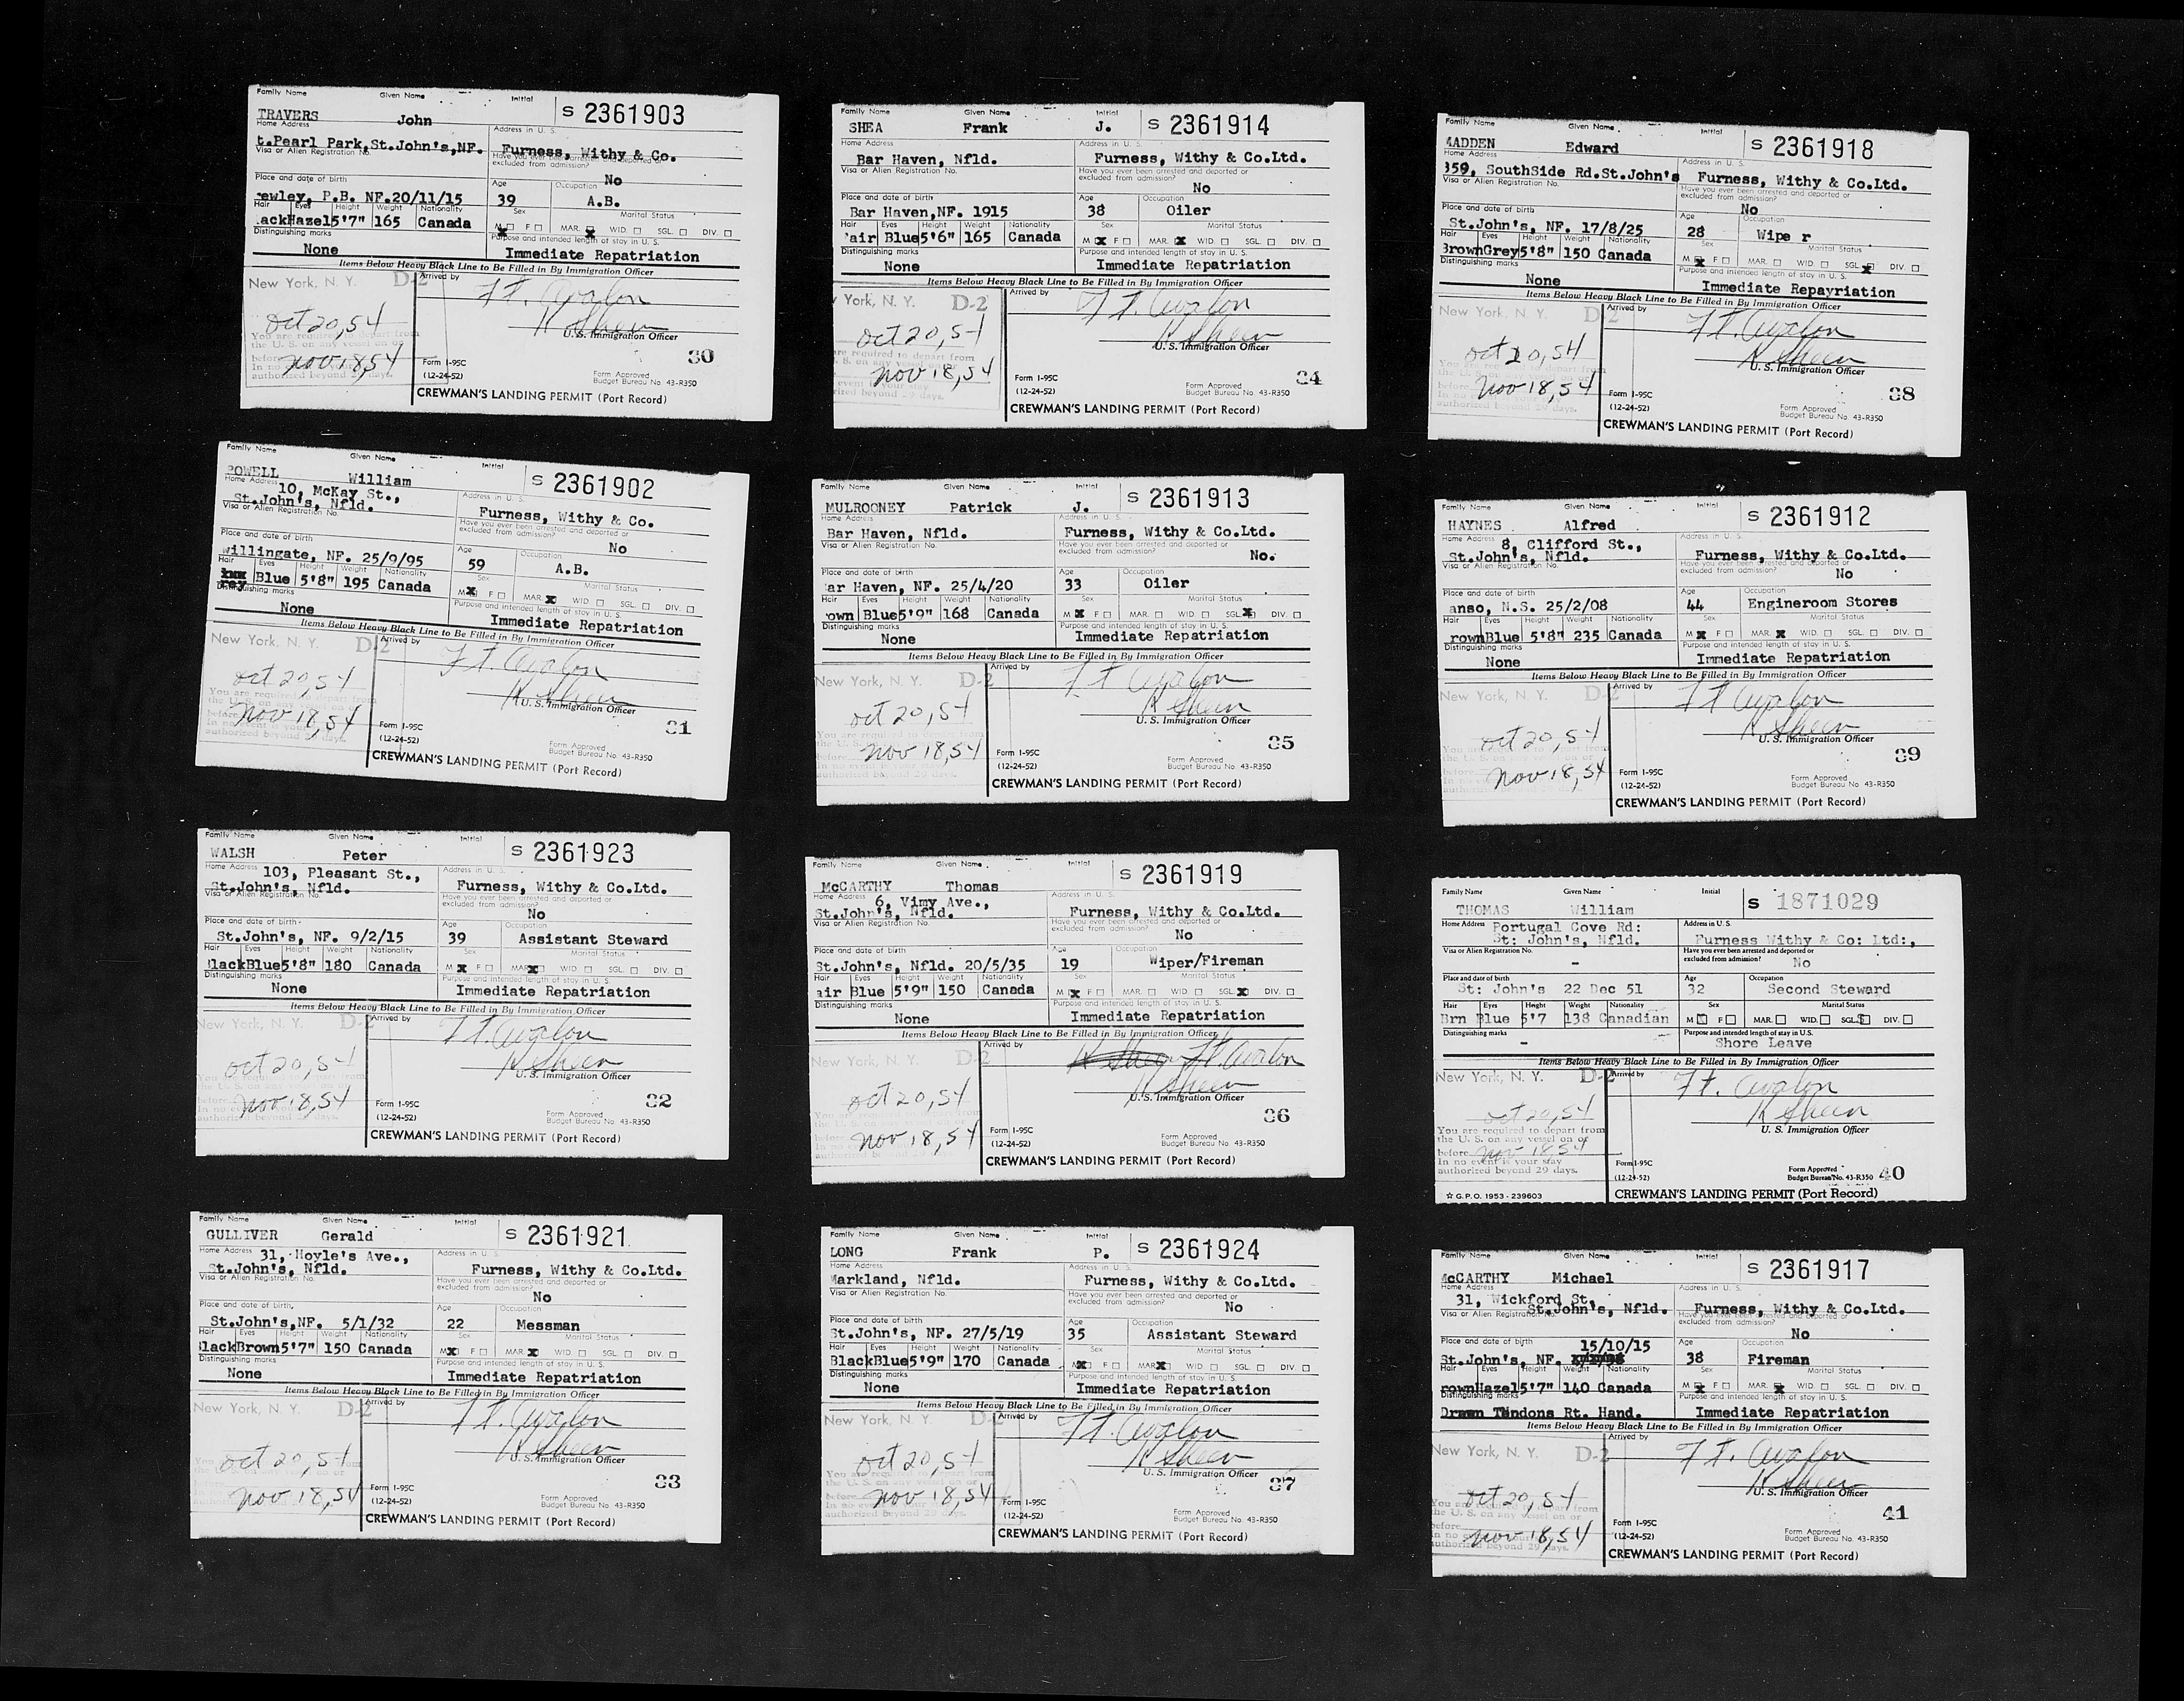 Family Name Given Name Initial
TRAVERS John S 2361903
Home Address Address in U. S.
t.Pearl Park,St.John's,NF. Furness, Withy & Co.
Visa or Alien Registration No. Have you ever been arrested and deported or excluded from admission?
No
Place and date of birth Age Occupation
ewley, P.B. NF.20/11/15 39 A.B.
Hair Eyes Height Weight Nationality Sex Marital Status
ackHazel5'7" 165 Canada M F MAR. WID. SGL. DIV.
Distinguishing marks Purpose and intended length of stay in U. S.
None Immediate Repatriation
Items Below Heavy Black Line to Be Filled in By Immigration Officer
New York, N. Y. D-2 Arrived by Ft. Avalon
Oct 20, 54 K Sheen
U. S. Immigration Officer
You are required to depart from
the U. S. on any vessel on or
before Nov 18, 54
authorized beyond 29 days.
30
Form I-95C
(12-24-52) Form Approved
Budget Bureau No. 43-R350
CREWMAN'S LANDING PERMIT (Port Record)
Family Name Given Name Initial
POWELL William S 2361902
Home Address 10, McKay St., Address in U. S.
St.John's, Nfld. Furness, Withy & Co.
Visa or Alien Registration No. Have you ever been arrested and deported or excluded from admission?
No
Place and date of birth Age Occupation
willingate, NF. 25/9/95 59 A.B.
Hair Eyes Height Weight Nationality Sex Marital Status
rey Blue 5'8" 195 Canada M F MAR. WID. SGL. DIV.
Distinguishing marks Purpose and intended length of stay in U. S.
None Immediate Repatriation
Items Below Heavy Black Line to Be Filled in By Immigration Officer
New York, N. Y. D-2 Arrived by Ft. Avalon
Oct 20, 54 K Sheen
U. S. Immigration Officer
You are required to depart from
the U. S. on any vessel on or
before Nov 18, 54
authorized beyond 29 days.
31
Form I-95C
(12-24-52) Form Approved
Budget Bureau No. 43-R350
CREWMAN'S LANDING PERMIT (Port Record)
Family Name Given Name Initial
WALSH Peter S 2361923
Home Address 103, Pleasant St., Address in U. S.
St.John's, Nfld. Furness, Withy & Co.Ltd.
Visa or Alien Registration No. Have you ever been arrested and deported or excluded from admission?
No
Place and date of birth Age Occupation
St.John's, NF. 9/2/15 39 Assistant Steward
Hair Eyes Height Weight Nationality Sex Marital Status
lackBlue5'8" 180 Canada M F MAR. WID. SGL. DIV.
Distinguishing marks Purpose and intended length of stay in U. S.
None Immediate Repatriation
Items Below Heavy Black Line to Be Filled in By Immigration Officer
New York, N. Y. D-2 Arrived by Ft. Avalon
Oct 20, 54 K Sheen
U. S. Immigration Officer
Nov 18, 54
32
Form I-95C
(12-24-52) Form Approved
Budget Bureau No. 43-R350
CREWMAN'S LANDING PERMIT (Port Record)
Family Name Given Name Initial
GULLIVER Gerald S 2361921
Home Address 31, Hoyle's Ave., Address in U. S.
St.John's, Nfld. Furness, Withy & Co.Ltd.
Visa or Alien Registration No. Have you ever been arrested and deported or excluded from admission?
No
Place and date of birth Age Occupation
St.John's,NF. 5/1/32 22 Messman
Hair Eyes Height Weight Nationality Sex Marital Status
lackBrown5'7" 150 Canada M F MAR. WID. SGL. DIV.
Distinguishing marks Purpose and intended length of stay in U. S.
None Immediate Repatriation
Items Below Heavy Black Line to Be Filled in By Immigration Officer
New York, N. Y. D-2 Arrived by Ft. Avalon
Oct 20, 54 K Sheen
U. S. Immigration Officer
Nov 18, 54
33
Form I-95C
(12-24-52) Form Approved
Budget Bureau No. 43-R350
CREWMAN'S LANDING PERMIT (Port Record)
Family Name Given Name Initial
SHEA Frank J. S 2361914
Home Address Address in U. S.
Bar Haven, Nfld. Furness, Withy & Co.Ltd.
Visa or Alien Registration No. Have you ever been arrested and deported or excluded from admission?
No
Place and date of birth Age Occupation
Bar Haven,NF. 1915 38 Oiler
Hair Eyes Height Weight Nationality Sex Marital Status
air Blue5'6" 165 Canada M F MAR. WID. SGL. DIV.
Distinguishing marks Purpose and intended length of stay in U. S.
None Immediate Repatriation
Items Below Heavy Black Line to Be Filled in By Immigration Officer
York, N. Y. D-2 Arrived by Ft. Avalon
Oct 20, 54 K Sheen
U. S. Immigration Officer
are required to depart from
Nov 18, 54
34
Form I-95C
(12-24-52) Form Approved
Budget Bureau No. 43-R350
CREWMAN'S LANDING PERMIT (Port Record)
Family Name Given Name Initial
MULROONEY Patrick J. S 2361913
Home Address Address in U. S.
Bar Haven, Nfld. Furness, Withy & Co.Ltd.
Visa or Alien Registration No. Have you ever been arrested and deported or excluded from admission?
No.
Place and date of birth Age Occupation
ar Haven, NF. 25/4/20 33 Oiler
Hair Eyes Height Weight Nationality Sex Marital Status
own Blue5'9" 168 Canada M F MAR. WID. SGL. DIV.
Distinguishing marks Purpose and intended length of stay in U. S.
None Immediate Repatriation
Items Below Heavy Black Line to Be Filled in By Immigration Officer
New York, N. Y. D-2 Arrived by Ft Avalon
Oct 20, 54 K Sheen
U. S. Immigration Officer
You are required to depart from
Nov 18, 54
35
Form I-95C
(12-24-52) Form Approved
Budget Bureau No. 43-R350
CREWMAN'S LANDING PERMIT (Port Record)
Family Name Given Name Initial
McCARTHY Thomas S 2361919
Home Address 6, Vimy Ave., Address in U. S.
St.John's, Nfld. Furness, Withy & Co.Ltd.
Visa or Alien Registration No. Have you ever been arrested and deported or excluded from admission?
No
Place and date of birth Age Occupation
St.John's, Nfld. 20/5/35 19 Wiper/Fireman
Hair Eyes Height Weight Nationality Sex Marital Status
air Blue 5'9" 150 Canada M F MAR. WID. SGL. DIV.
Distinguishing marks Purpose and intended length of stay in U. S.
None Immediate Repatriation
Items Below Heavy Black Line to Be Filled in By Immigration Officer
New York, N. Y. D-2 Arrived by K Sheen Ft Avalon
Oct 20, 54 K Sheen
U. S. Immigration Officer
Nov 18, 54
36
Form I-95C
(12-24-52) Form Approved
Budget Bureau No. 43-R350
CREWMAN'S LANDING PERMIT (Port Record)
Family Name Given Name Initial
LONG Frank P. S 2361924
Home Address Address in U. S.
Markland, Nfld. Furness, Withy & Co.Ltd.
Visa or Alien Registration No. Have you ever been arrested and deported or excluded from admission?
No
Place and date of birth Age Occupation
St.John's, NF. 27/5/19 35 Assistant Steward
Hair Eyes Height Weight Nationality Sex Marital Status
BlackBlue5'9" 170 Canada M F MAR. WID. SGL. DIV.
Distinguishing marks Purpose and intended length of stay in U. S.
None Immediate Repatriation
Items Below Heavy Black Line to Be Filled in By Immigration Officer
New York, N. Y. D-2 Arrived by Ft. Avalon
Oct 20, 54 K Sheen
U. S. Immigration Officer
Nov 18, 54
37
Form I-95C
(12-24-52) Form Approved
Budget Bureau No. 43-R350
CREWMAN'S LANDING PERMIT (Port Record)
Family Name Given Name Initial
MADDEN Edward S 2361918
Home Address Address in U. S.
359, SouthSide Rd.St.John's Furness, Withy & Co.Ltd.
Visa or Alien Registration No. Have you ever been arrested and deported or excluded from admission?
No
Place and date of birth Age Occupation
St.John's, NF. 17/8/25 28 Wipe r
Hair Eyes Height Weight Nationality Sex Marital Status
BrownGrey5'8" 150 Canada M F MAR. WID. SGL. DIV.
Distinguishing marks Purpose and intended length of stay in U. S.
None Immediate Repayriation
Items Below Heavy Black Line to Be Filled in By Immigration Officer
New York, N. Y. D-2 Arrived by Ft. Avalon
Oct 20, 54 K Sheen
U. S. Immigration Officer
before Nov 18, 54
38
Form I-95C
(12-24-52) Form Approved
Budget Bureau No. 43-R350
CREWMAN'S LANDING PERMIT (Port Record)
Family Name Given Name Initial
HAYNES Alfred S 2361912
Home Address 8, Clifford St., Address in U. S.
St.John's, Nfld. Furness, Withy & Co.Ltd.
Visa or Alien Registration No. Have you ever been arrested and deported or excluded from admission?
No
Place and date of birth Age Occupation
anso, N.S. 25/2/08 44 Engineroom Stores
Hair Eyes Height Weight Nationality Sex Marital Status
rownBlue 5'8" 235 Canada M F MAR. WID. SGL. DIV.
Distinguishing marks Purpose and intended length of stay in U. S.
None Immediate Repatriation
Items Below Heavy Black Line to Be Filled in By Immigration Officer
New York, N. Y. D-2 Arrived by Ft Avalon
Oct 20, 54 K Sheen
U. S. Immigration Officer
Nov 18, 54
39
Form I-95C
(12-24-52) Form Approved
Budget Bureau No. 43-R350
CREWMAN'S LANDING PERMIT (Port Record)
Family Name Given Name Initial
THOMAS William S 1871029
Home Address Portugal Cove Rd: Address in U.S.
St: John's, Nfld. Furness Withy & Co: Ltd:,
Visa or Alien Registration No. - Have you ever been arrested and deported or excluded from admission?
No
Place and date of birth Age Occupation
St: John's 22 Dec 51 32 Second Steward
Hair Eyes Height Weight Nationality Sex Marital Status
Brn Blue 5'7 138 Canadian M F MAR. WID. SGL. DIV.
Distinguishing marks - Purpose and intended length of stay in U.S.
Shore Leave
Items Below Heavy Black Line to Be Filled in By Immigration Officer
New York, N. Y. D-2 Arrived by Ft. Avalon
Oct 20, 54 K Sheen
You are required to depart from U. S. Immigration Officer
the U. S. on any vessel on or
before Nov 18 54
In no event is your stay
authorized beyond 29 days.
Form I-95C
(12-24-52) Form Approved
Budget Bureau No. 43-R350 40
☆ G.P.O. 1953-239603 CREWMAN'S LANDING PERMIT (Port Record)
Family Name Given Name Initial
McCARTHY Michael S 2361917
Home Address Address in U. S.
31, Wickford St.
St.John's, Nfld. Furness, Withy & Co.Ltd.
Visa or Alien Registration No. Have you ever been arrested and deported or excluded from admission?
No
Place and date of birth 15/10/15 Age Occupation
St.John's, NF. 38 Fireman
Hair Eyes Height Weight Nationality Sex Marital Status
rownHazel5'7" 140 Canada M F MAR. WID. SGL. DIV.
Distinguishing marks Purpose and intended length of stay in U. S.
Drawn Tendons Rt. Hand. Immediate Repatriation
Items Below Heavy Black Line to Be Filled in By Immigration Officer
New York, N. Y. D-2 Arrived by Ft. Avalon
Oct 20, 54 K Sheen
U. S. Immigration Officer
the U. S. on any vessel on or
before Nov 18, 54
41
Form I-95C
(12-24-52) Form Approved
Budget Bureau No. 43-R350
CREWMAN'S LANDING PERMIT (Port Record)